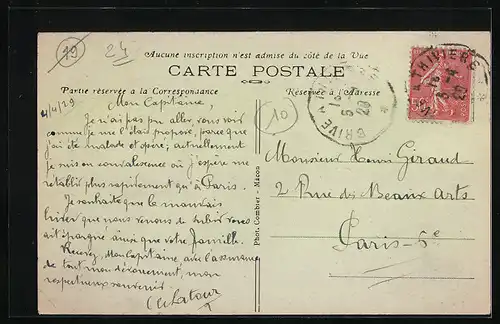 19
24
Aucune inscription n'est admise du côté de la Vue
CARTE POSTALE
Partie réservée à la Correspondance
Réservée à l'Adresse
4/4/29
Mon Capitaine,
Je n'ai pas pu aller vous voir
comme je me l'étais proposé, parce que
j'ai été malade et opéré, actuellement
je suis en convalescence où j'espère me
rétablir plus rapidement qu'à Paris.
Je souhaite que le mauvais
hiver que nous venons de subir vous
ait épargné ainsi que votre famille.
Recevez, Mon Capitaine, avec l'assurance
de tout mon dévouement, mon
respectueux souvenir
Latour
Phot. Combier - Mâcon
BRIVE
THIVIERS
10
Monsieur Henri Géraud
2 Rue des Beaux Arts
Paris-6e